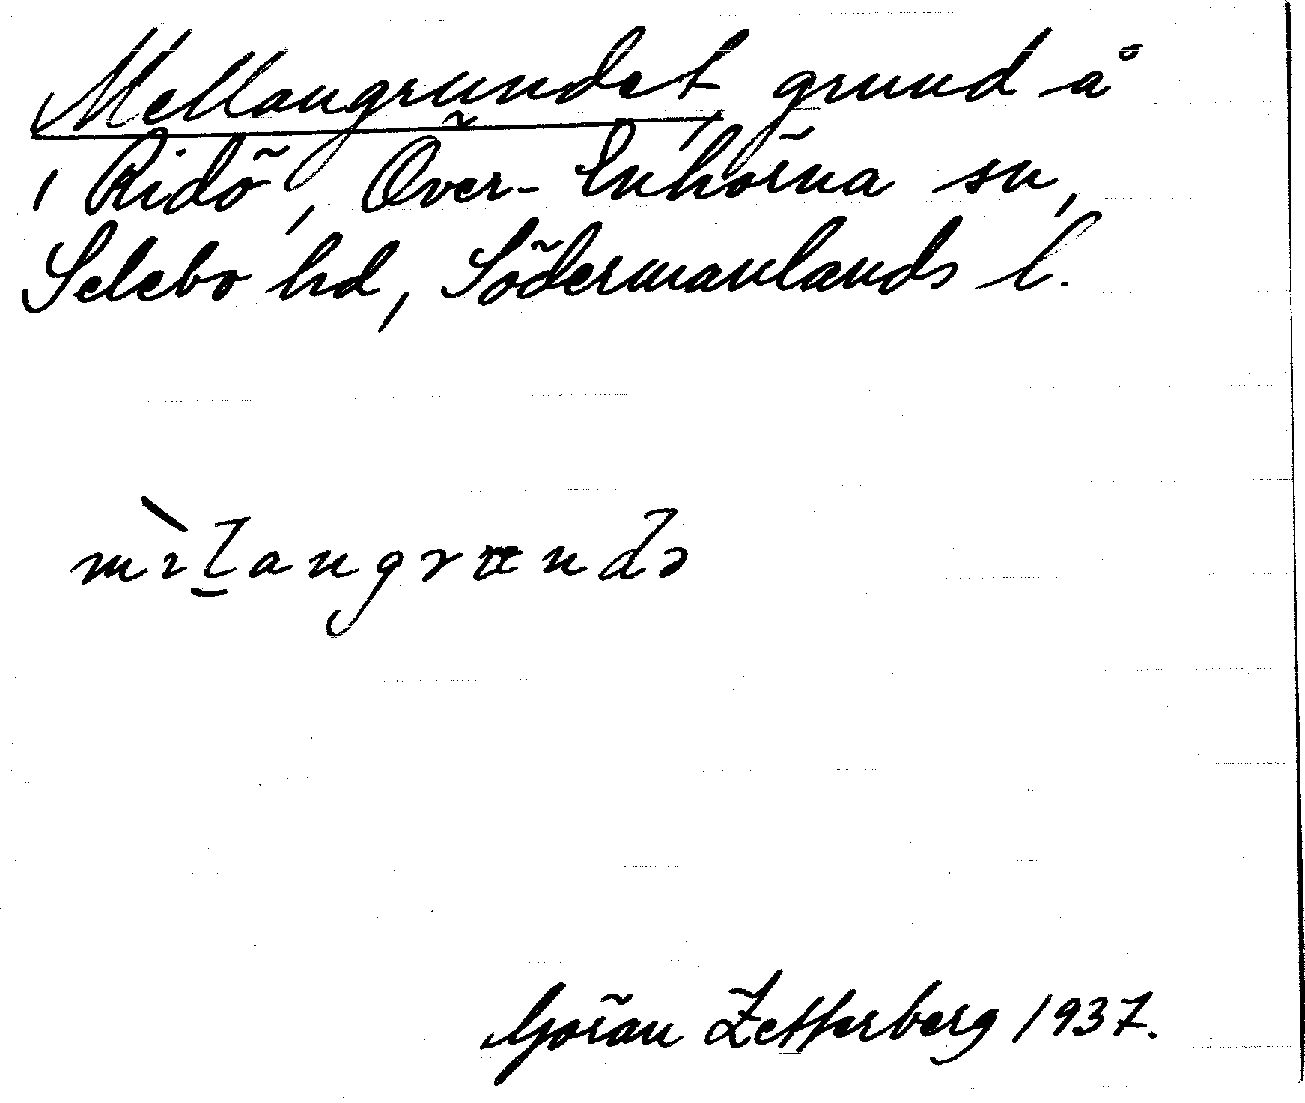 Mellangrundet, grund å
i Ridö, Över-Enhörna sn,
Selebo hd, Södermanlands l.
mìl̲angrundə
Göran Zetterberg 1937.